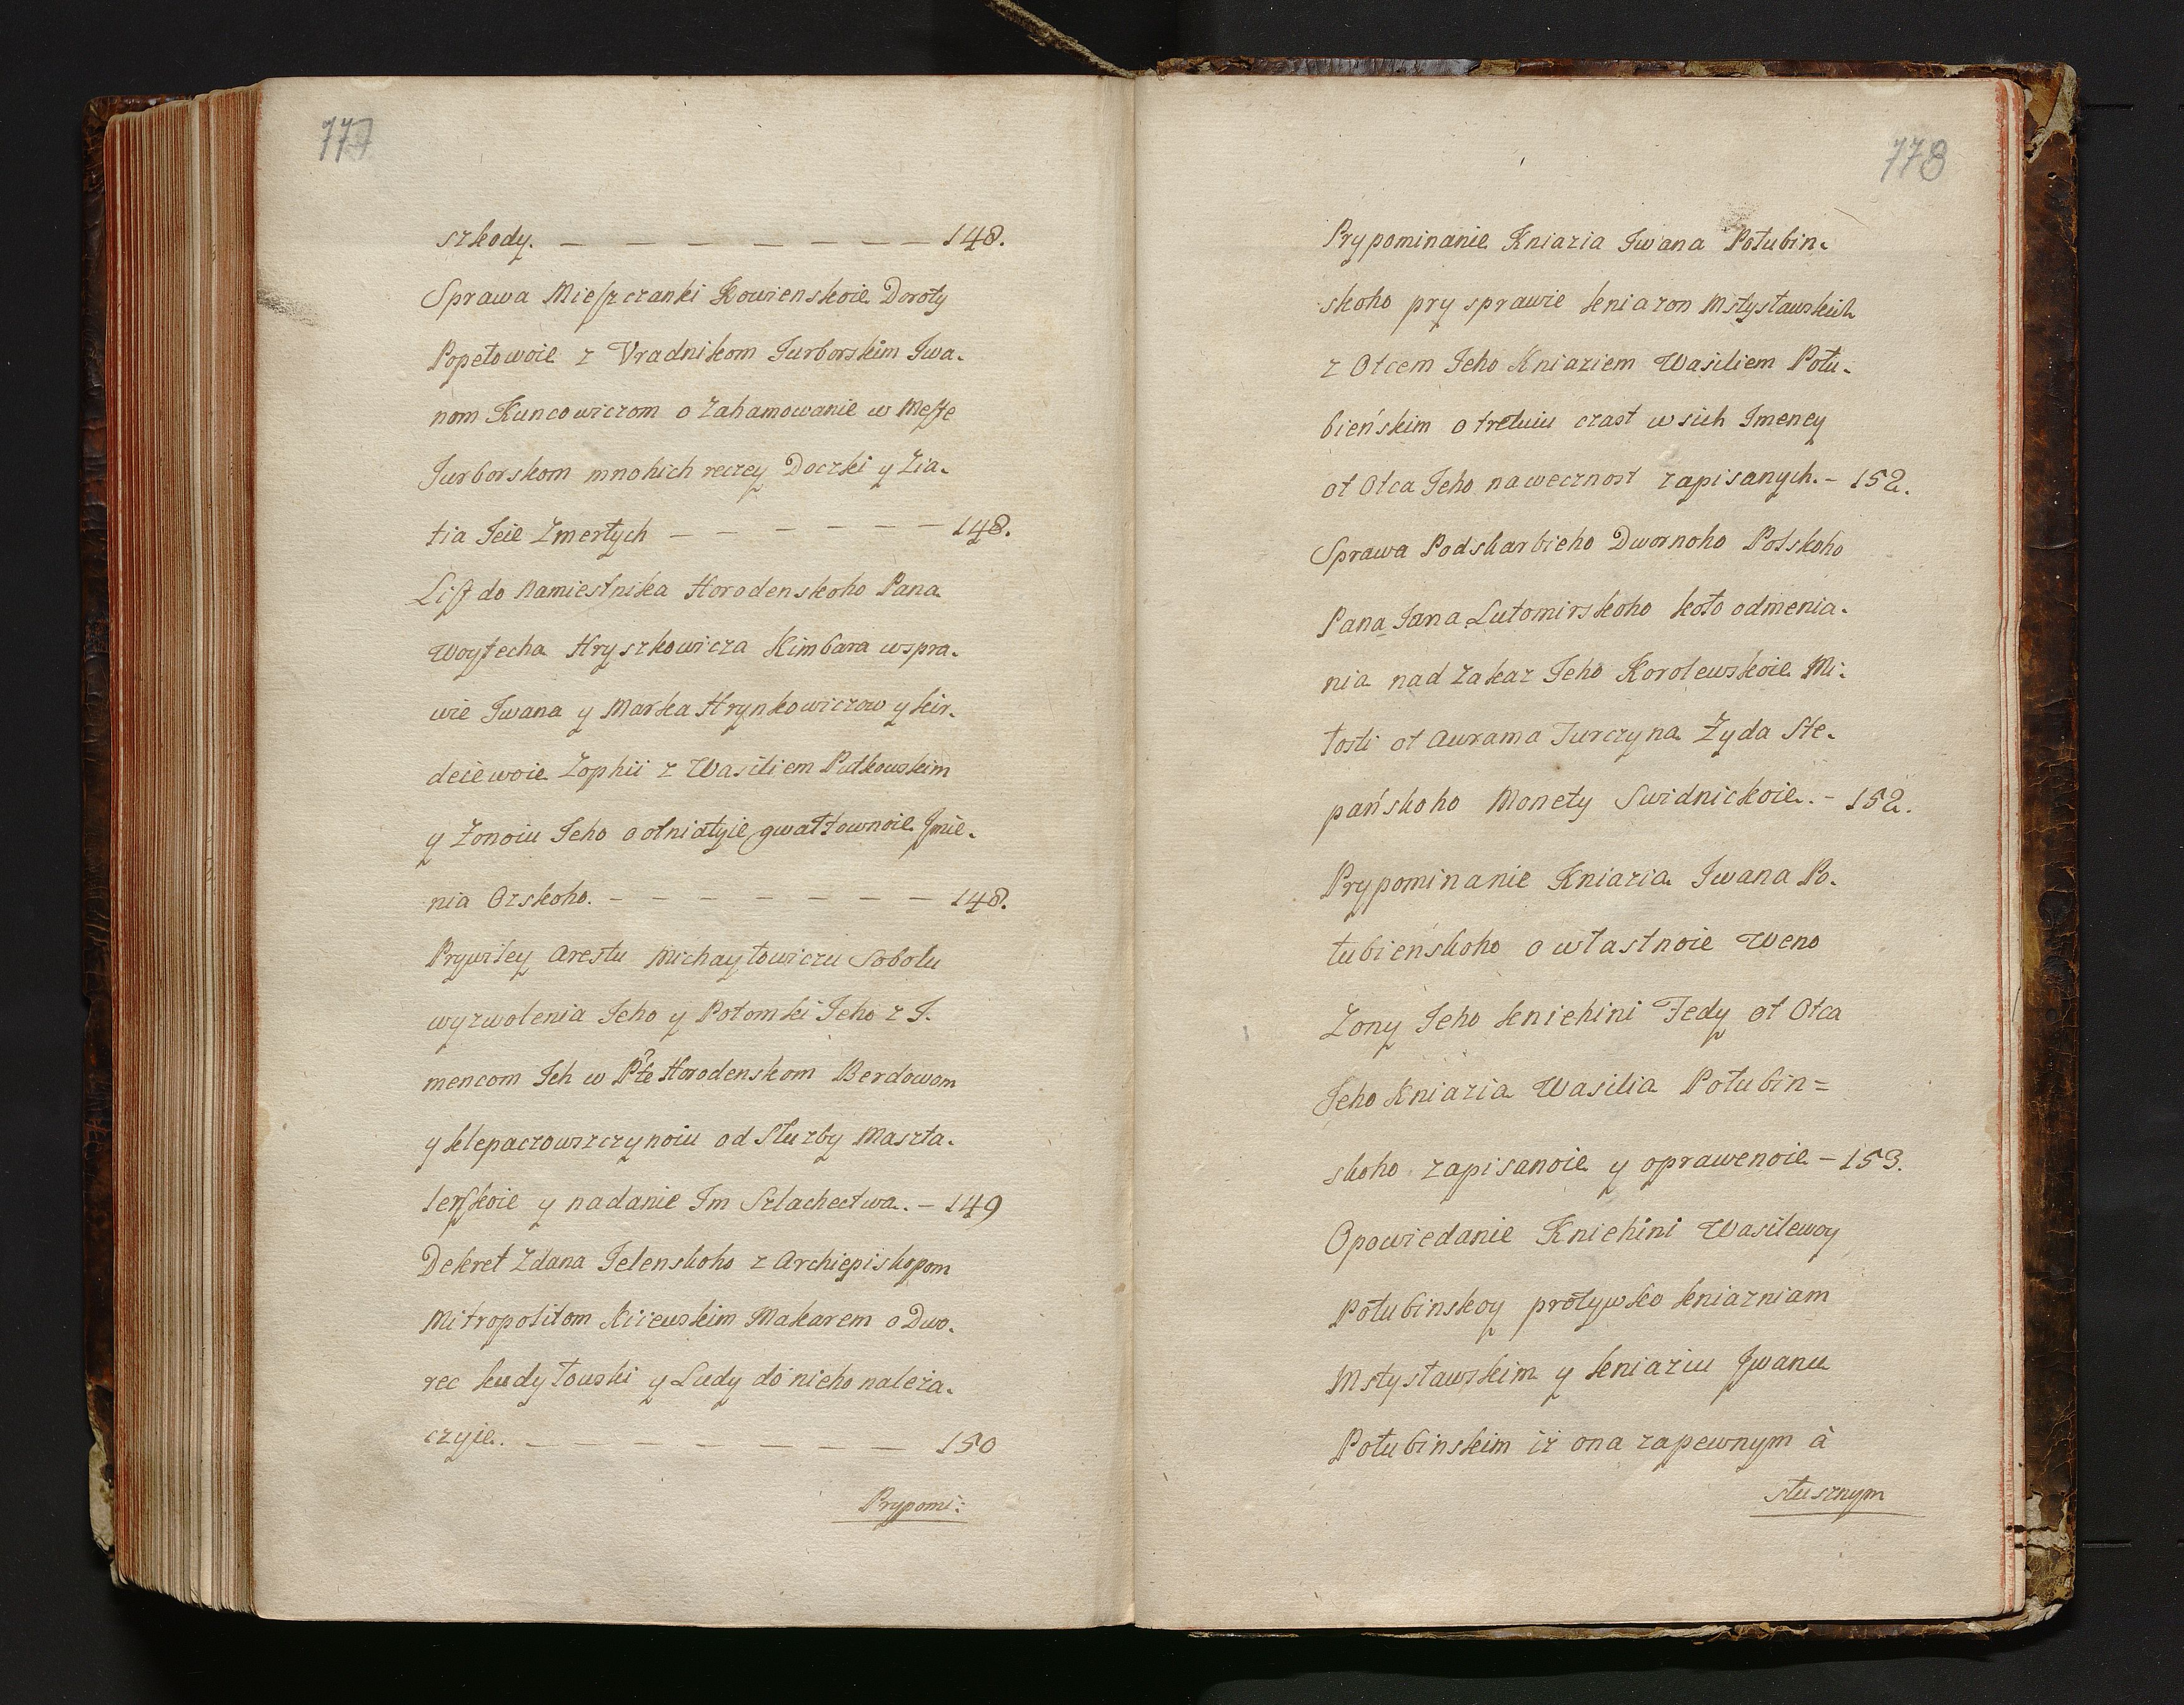 777
szkody. — — — — — — — — 148.
Sprawa Mieszczanki Kowienskoie Doroty
Popełowoie z Vradnikom Jurborskim Jwa-
nom Kuncowiczom o Zahamowanie w Meste
Jurborskom mnohich reczey Doczki y Zia-
tia Jeie Zmerłych — — — — — — 148.
List do Namiestnika Horodenskoho Pana
Woytecha Hryszkowicza Kimbara wspra-
wie Jwana y Marka Hrynkowiczow y kir-
deiewoie Zophii z Wasiliem Putkowskim
y Zonoiu Jeho o otniatyie gwałtownoie Jmie-
nia Ozskoho. — — — — — — — 148.
Prywiley Arestu Michayłowiczu Sobolu
wyzwolenia Jeho y Potomki Jeho z J-
mencom Jch w Pte Horodenskom Berdowom
y klepaczowszczynoiu od Służby Maszta-
lerskoie y nadanie Jm Szlachectwa. — 149
Dekret Zdana Jelenskoho z Archiepiskopom
Mitropolitom Kiiewskim Makarem o Dwo-
rec kudyłowski y Ludy do nieho należa-
czyie. — — — — — — — — 150
Prypomi:
778
Prypominanie Kniazia Jwana Połubin-
skoho pry sprawie kniazon Mstysławskich
z Otcem Jeho Kniaziem Wasiliem Połu-
bieńskim o tretuiu czast wsich Jmeney
ot Otca Jeho na wecznost zapisanych. — 152.
Sprawa Podskarbieho Dwornoho Polskoho
Pana Jana Lutomirskoho koło odmenia-
nia nad Zakaz Jeho Korolewskoie Mi-
łosti ot Awrama Turczyna Żyda Ste-
pańskoho Monety Swidnickoie. — 152.
Prypominanie Kniazia Jwana Po-
łubieńskoho o własťnoie Weno
Zony Jeho kniehini Fedy ot Otca
Jeho Kniazia Wasilia Połubin=
skoho zapisanoie y oprawenoie — 153.
Opowiedanie Kniehini Wasilewoy
Połubinskoy protywko kniazniam
Mstysławskim y kniaziu Jwanu
Połubinskim iż ona zapewnym à
słusznym